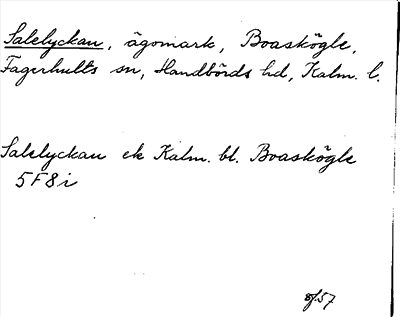 Salelyckau, ägomark, Boaskögle,
Fagerhults sn, Handbörds hd, Kalm. l.
Salelyckau ek Kalm. bl. Boaskögle
5F8i